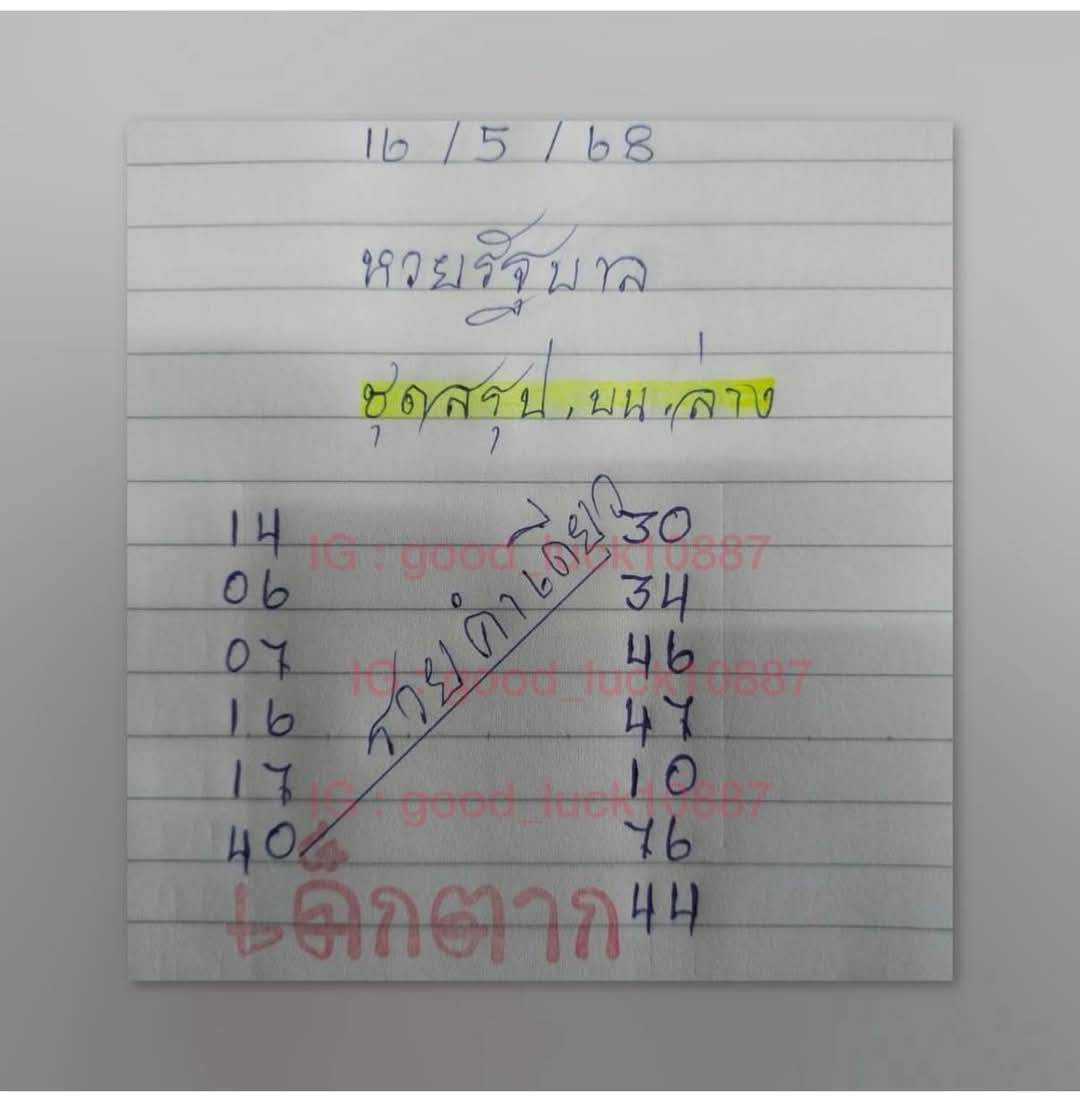 16 / 5 / 68
หวยรัฐบาล
ชุดสรุป.บน.ล่าง
14 30
06 34
07 46
16 47
17 10
40 76
44
รวยคำเดียว
IG : good_luck10887
IG : good_luck10887
IG : good_luck10887